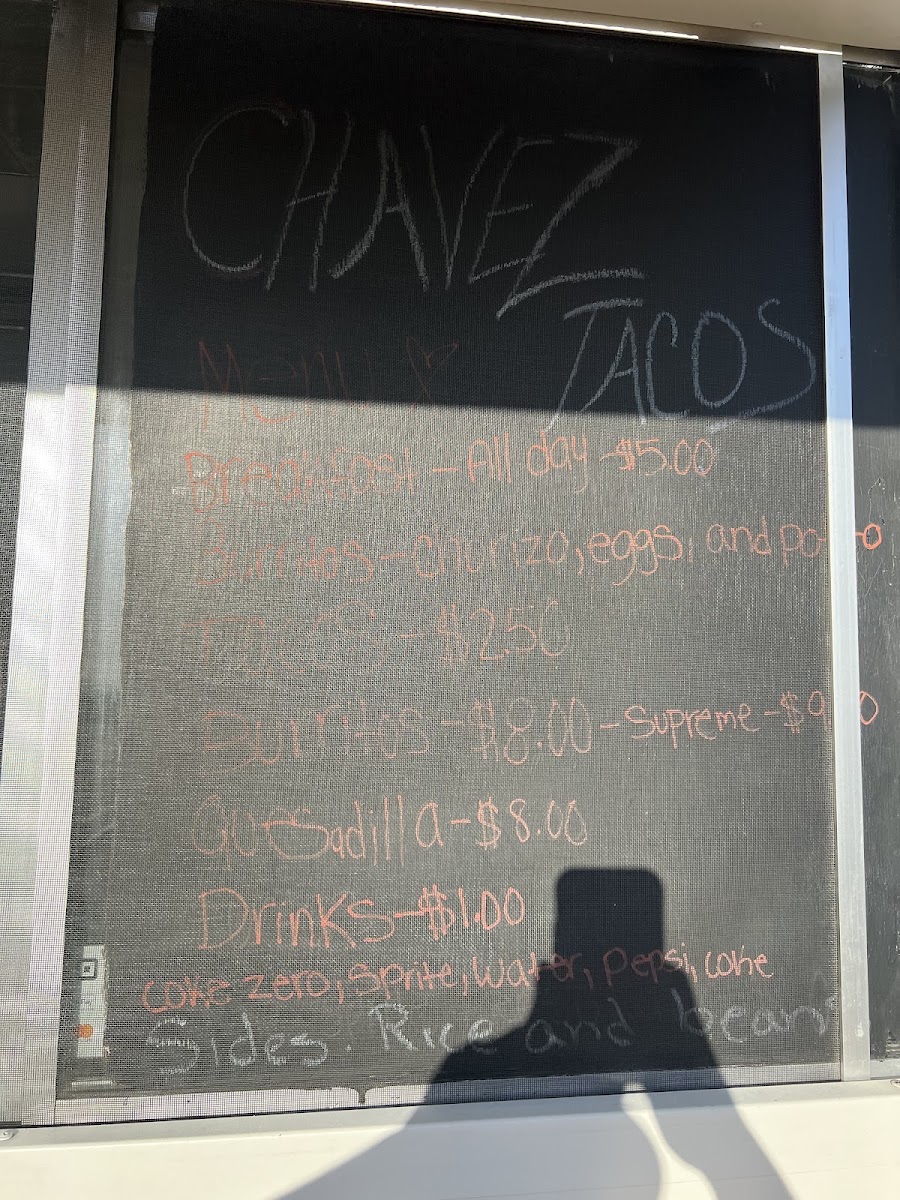 CHAVEZ
TACOS
Menu
Breakfast - All day - $5.00
Burritos - chorizo, eggs, and po o
- $2.50
Burritos - $8.00 - Supreme - $9. 0
Quesadilla - $8.00
Drinks - $1.00
coke zero, sprite, water, pepsi, coke
Sides. Rice and beans